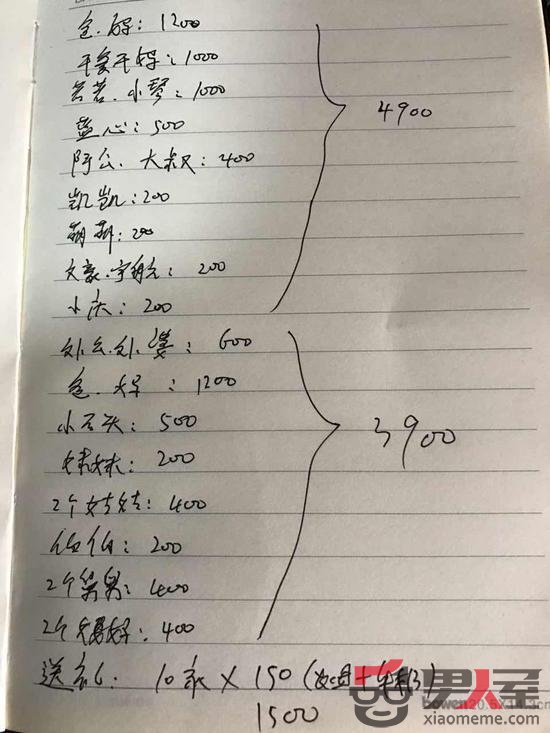 爸.妈: 1200
干爹干妈: 1000
苦苦.小琴: 1000
蓝心: 500
阿公.大叔: 400
凯凯: 200
萌萌: 200
文豪.宇航: 200
小庆: 200
4900
外公.外婆: 600
爸.妈: 1200
小石头: 500
妹妹: 200
2个姑姑: 400
伯伯: 200
2个舅舅: 400
2个舅妈: 400
3900
送礼: 10家 × 150 (
1500
男人屋
bowen20.5X14.3cm
xiaomeme.com